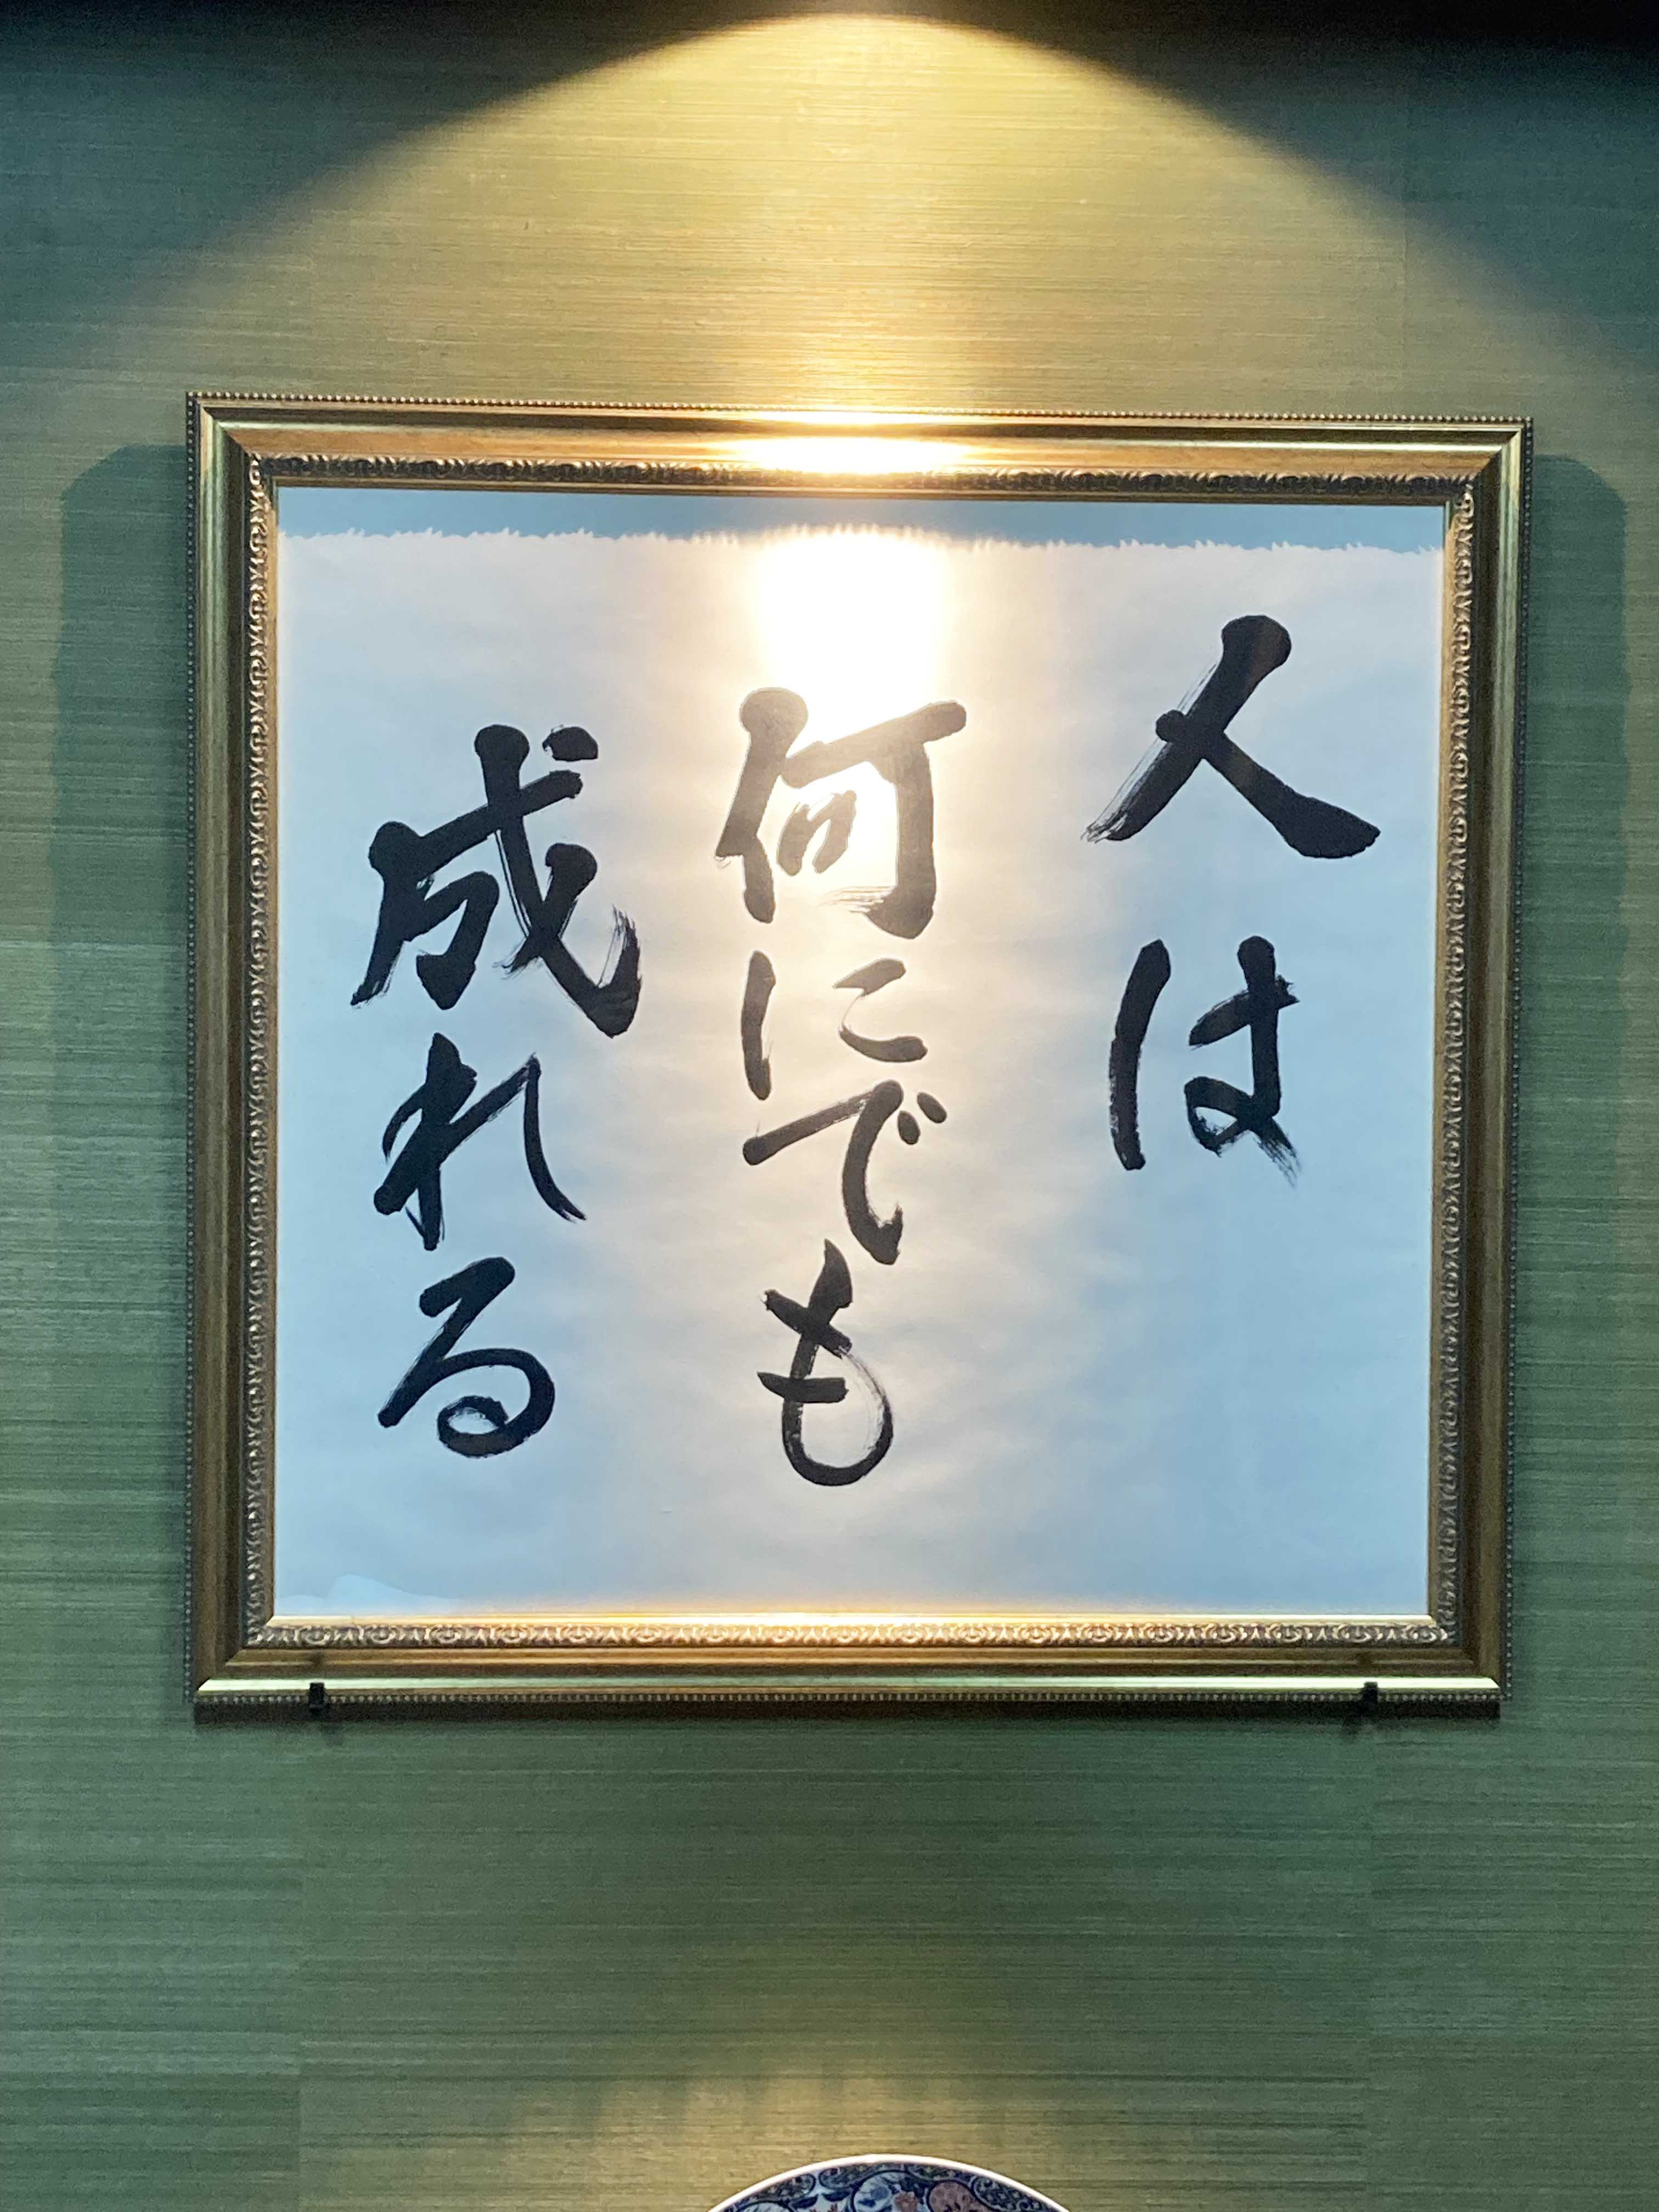 人は
何にでも
成れる